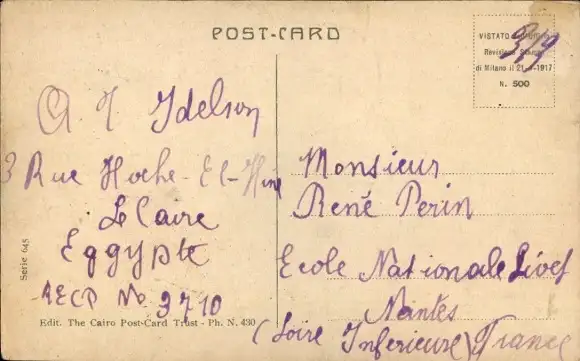 POST-CARD
VISTATO
Revisione Stampa
di Milano il 21-5-1917
N. 500
A J Idelson
3 Rue Hoche-El-Hine
Le Caire
Eggypte
AECP No 3710
Monsieur
René Perin
Ecole Nationale Livet
Nantes
(Loire Inferieure) France
Serie 645
Edit. The Cairo Post-Card Trust - Ph. N. 430